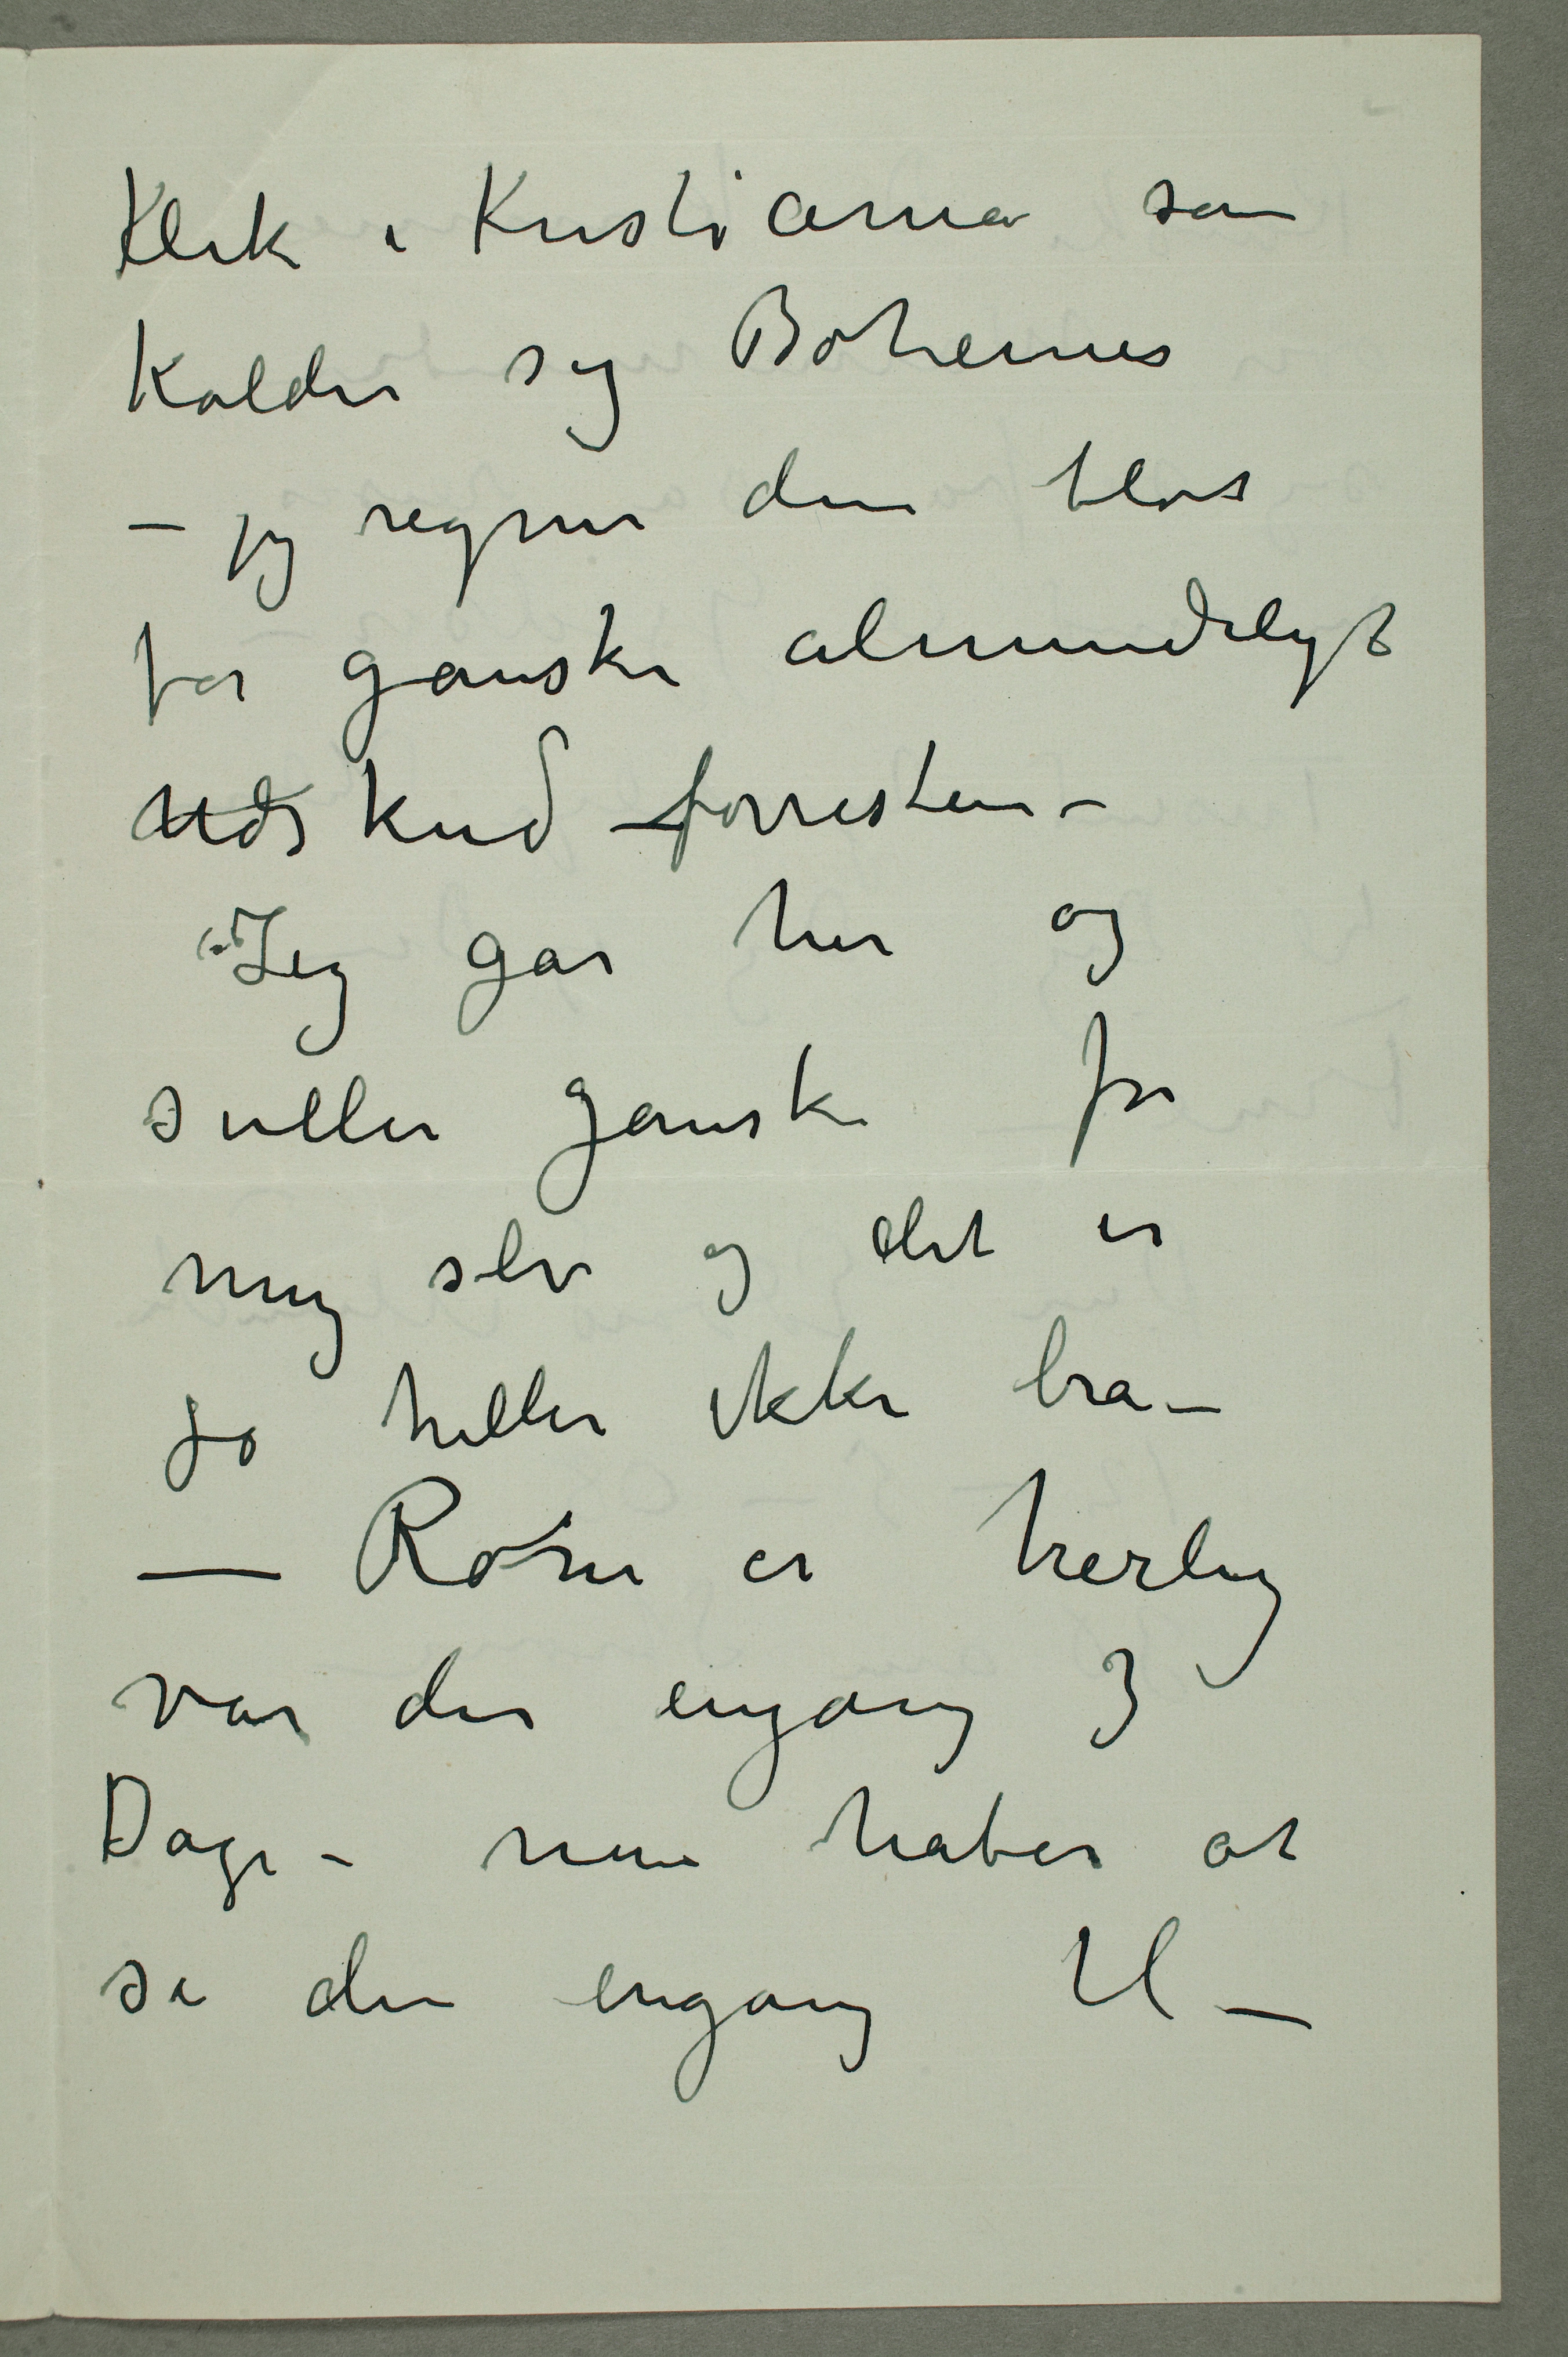 Klik i Kristiania som
kalder sig Bohemer
– jeg regner dem blot
for ganske almindeligt
Udskud forresten –
Jeg går her og
suller ganske for
mig selv og det er
jo heller ikke bra –
– Rom er herlig
var der engang 3
Dage – men håber at
se den engang til –